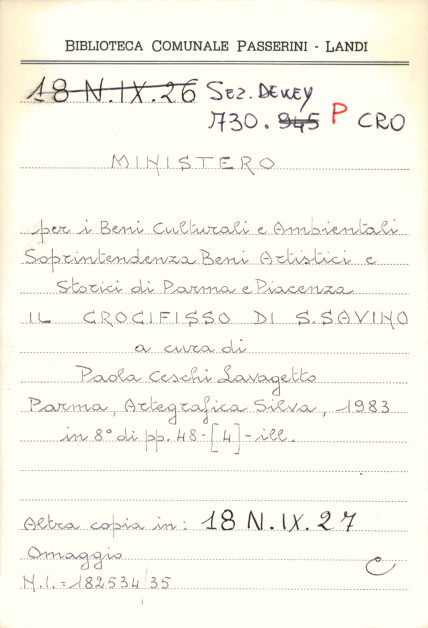 BIBLIOTECA COMUNALE PASSERINI - LANDI
18 N.IX.26 Sez. DEWEY
730.945 P CRO
MINISTERO
per i Beni Culturali e Ambientali
Soprintendenza Beni Artistici e
Storici di Parma e Piacenza
IL CROCIFISSO DI S.SAVINO
a cura di
Paola Ceschi Lavagetto
Parma, Artegrafica Silva, 1983
in 8° di pp. 48-[4]-ill.
Altra copia in: 18 N.IX.27
Omaggio
N.I.=182534/35
C